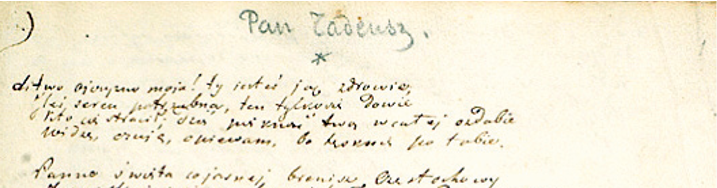 Pan Tadeusz.
*
Litwo ojczyzno moja! ty jesteś jak zdrowie,
sercu potrzebna, ten tylko się dowie
Kto cię stracił; dziś piękność twą w całej ozdobie
widzę, czuję, opiewam, bo tęsknię po tobie.
Panno święta co jasnej bronisz Częstochowy